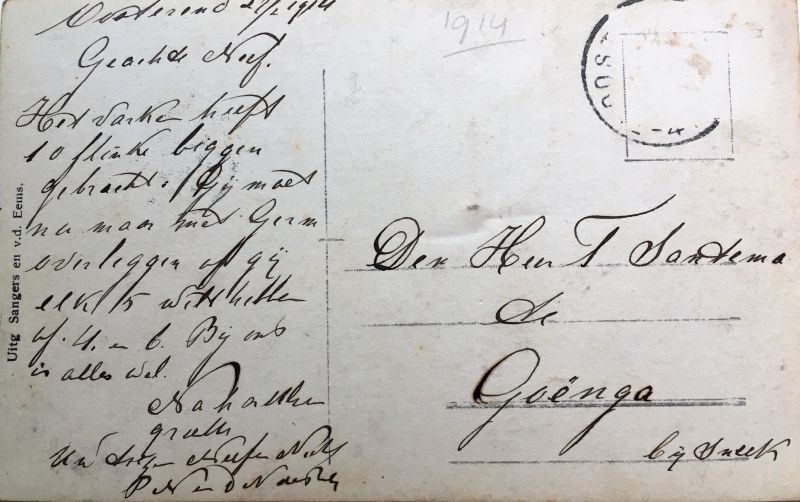 Oosterend 1914
Geachte Neef.
Het varken heeft
10 flinke biggen
gebracht. Gij moet
nu maar met Germ
overleggen of gij
elk 5 wilt hebben
of 4. en 6. Bij ons
is alles wel.
Na hartelijke
groete
Neef en Nicht
1914
Den Heer T Santema
te
Goënga
bij Sneek
Uitg Sangers en v.d. Eems.